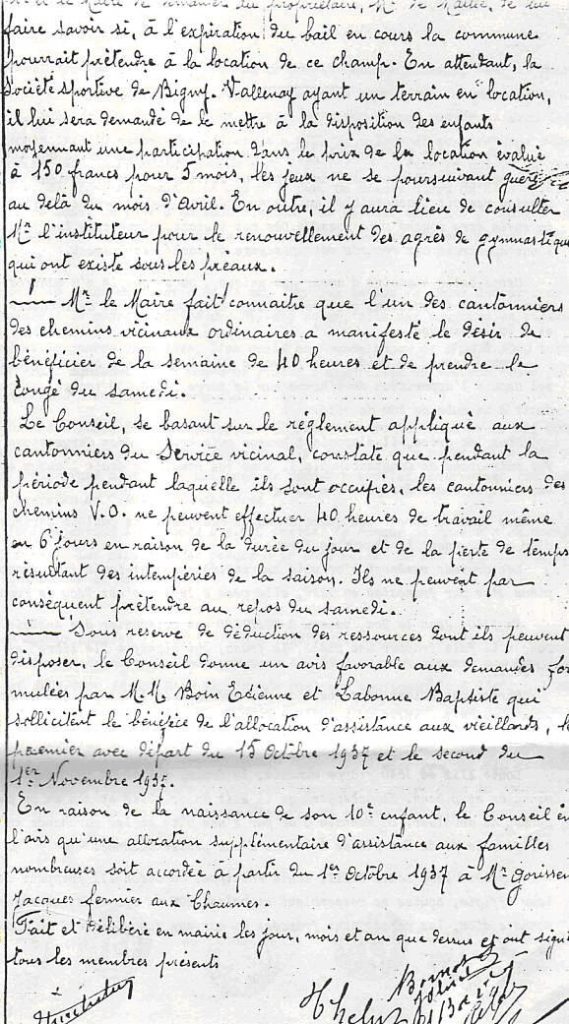 le Maire de demander au propriétaire, Mr de Maillé, de lui
faire savoir si, à l'expiration du bail en cours la commune
pourrait prétendre à la location de ce champ. En attendant, la
Société sportive de Bigny-Vallenay ayant un terrain en location,
il lui sera demandé de le mettre à la disposition des enfants
moyennant une participation dans le prix de la location évalué
à 150 francs pour 5 mois, les jeux ne se poursuivant guère
au delà du mois d'Avril. En outre, il y aura lieu de consulter
Mr l'instituteur pour le renouvellement des agrès de gymnastique
qui ont existé sous les préaux.
— Mr le Maire fait connaître que l'un des cantonniers
des chemins vicinaux ordinaires a manifesté le désir de
bénéficier de la semaine de 40 heures et de prendre le
congé du samedi.
Le Conseil, se basant sur le réglement appliqué aux
cantonniers du Service vicinal, constate que pendant la
période pendant laquelle ils sont occupés, les cantonniers des
chemins V.O. ne peuvent effectuer 40 heures de travail même
en 6 jours en raison de la durée du jour et de la perte de temps
résultant des intempéries de la saison. Ils ne peuvent par
conséquent prétendre au repos du samedi.
— Sous reserve de déduction des ressources dont ils peuvent
disposer, le Conseil donne un avis favorable aux demandes for
mulées par M.M. Boin Etienne et Labonne Baptiste qui
sollicitent le bénéfice de l'allocation d'assistance aux vieillards, le
premier avec départ du 15 Octobre 1937 et le second du
1er Novembre 1937.
En raison de la naissance de son 10e enfant, le Conseil é
l'avis qu'une allocation supplémentaire d'assistance aux familles
nombreuses soit accordée à partir du 1er Octobre 1937 à Mr Gorissen
Jacques fermier aux Chaumes.
Fait et délibéré en mairie les jour, mois et an que dessus et ont sign
tous les membres présents